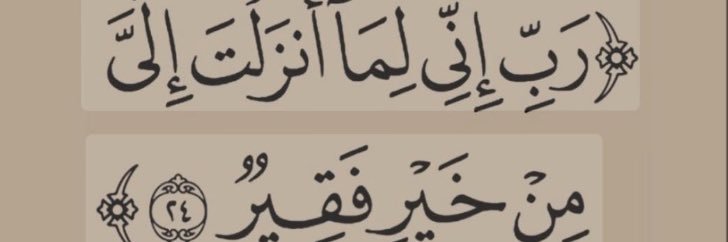 ﴿ رَبِّ إِنِّي لِمَآ أَنزَلۡتَ إِلَيَّ
مِنۡ خَيۡرٖ فَقِيرٞ ٢٤ ﴾